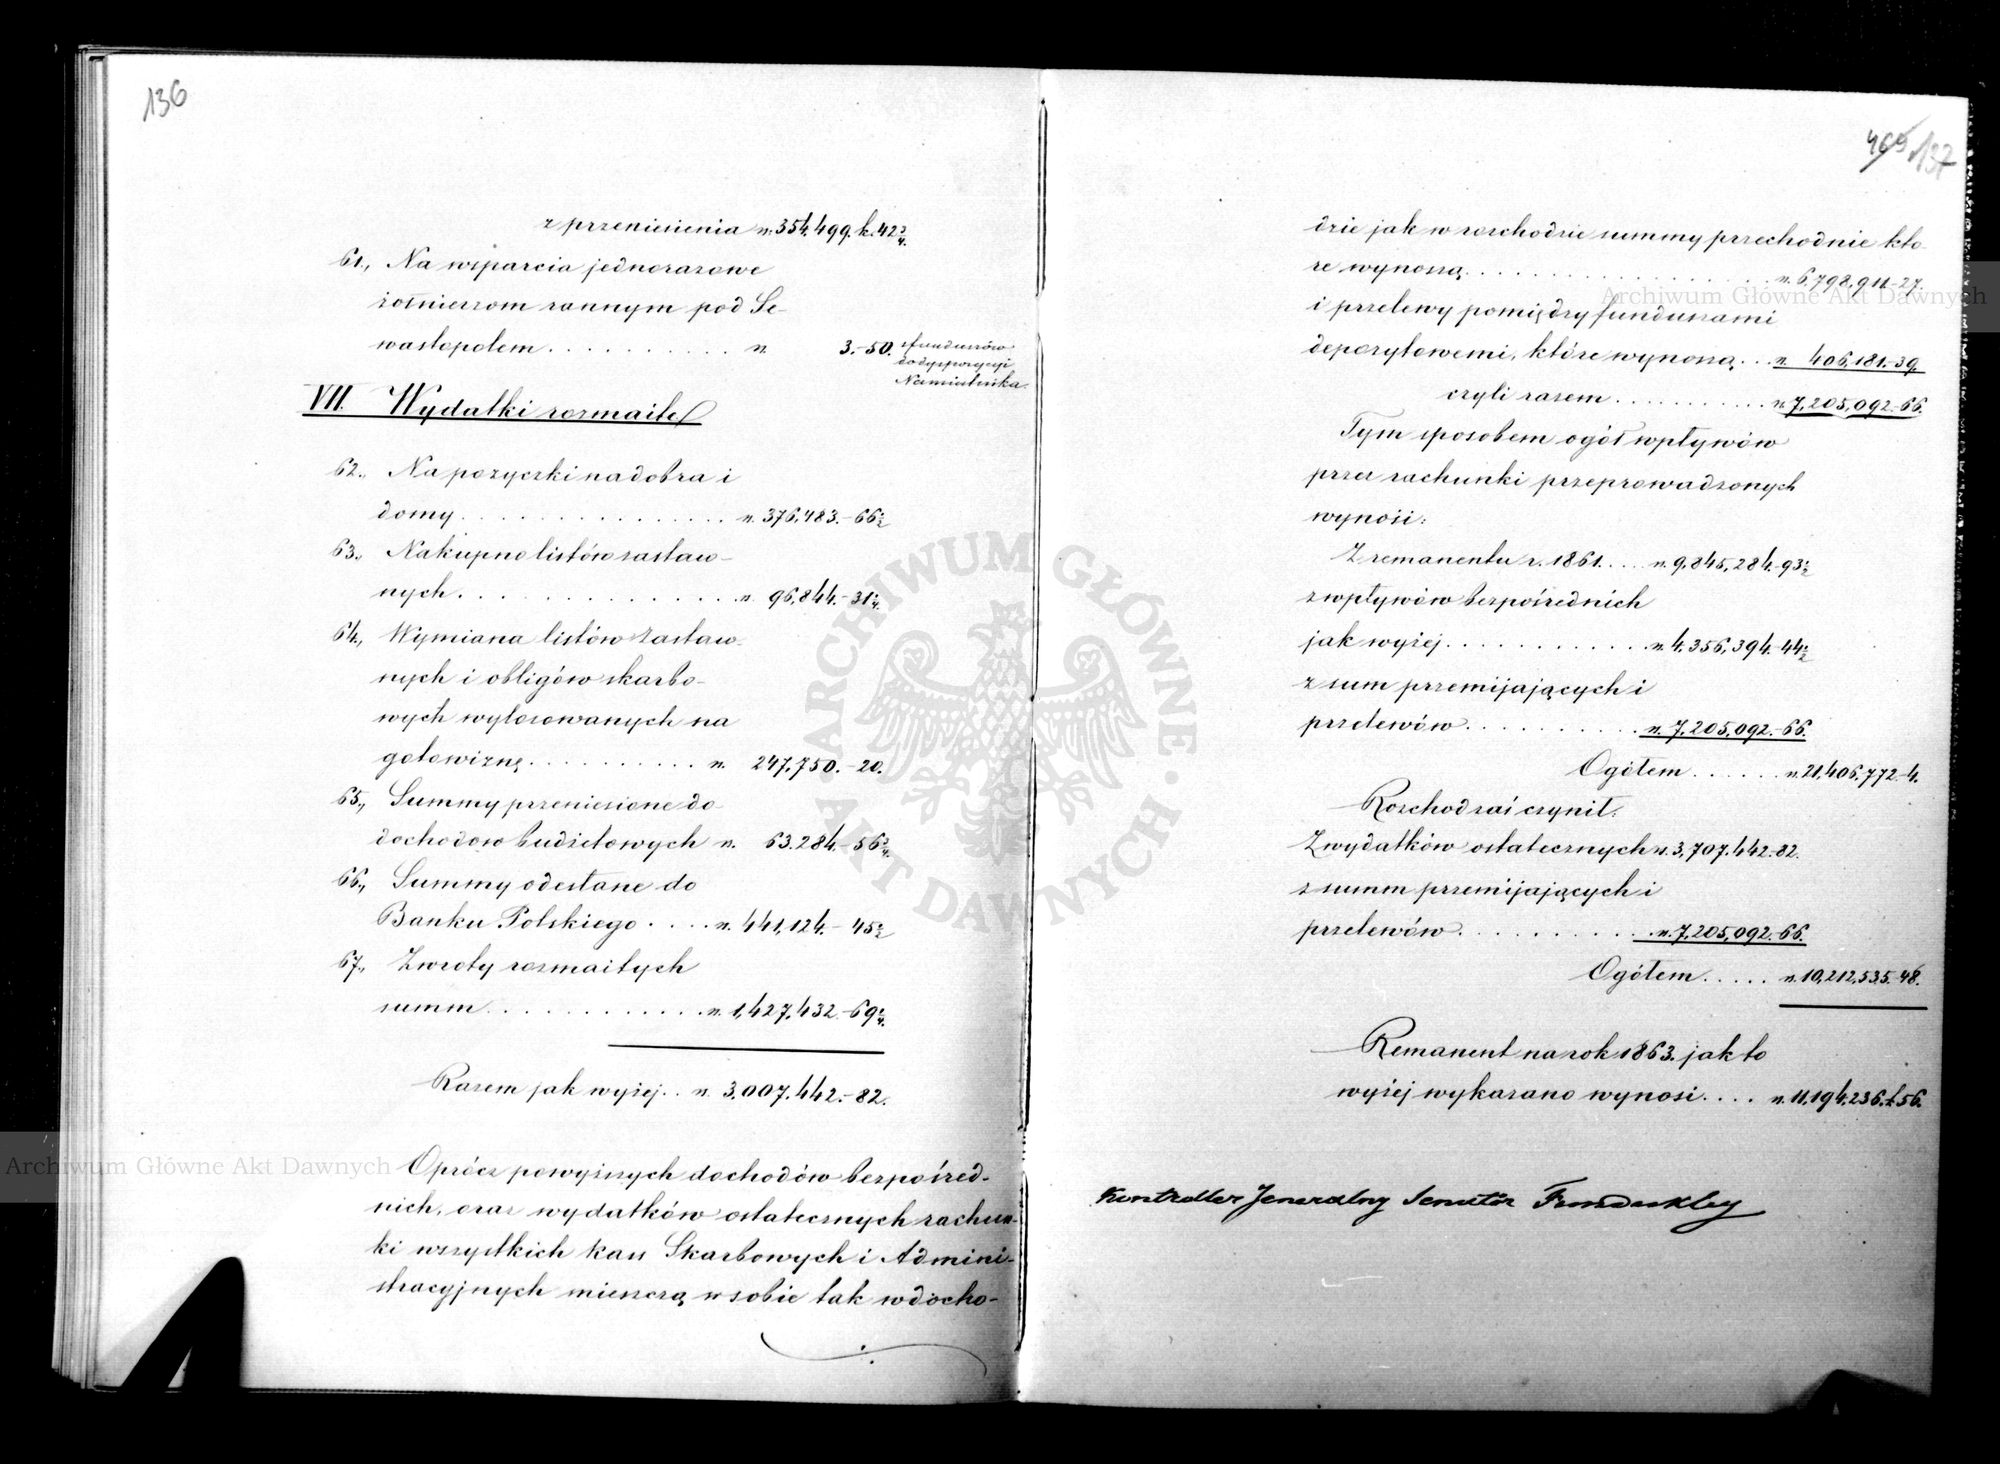 136
z przeniesienia rs. 354,499. k. 42 3/4.
61., Na wsparcia jednorazowe
żołnierzom rannym pod Se-
wastopolem . . . . . . . . . . . rs. 3.-50. z funduszów
do dyspozycyi
Namiestnika.
VII. Wydatki rozmaite
62., Na pożyczki na dobra i
domy . . . . . . . . . . . . . . . rs. 376,483.-66 1/2
63., Na kupno listów zastaw-
nych . . . . . . . . . . . . . . . rs. 96,844.-31 1/4.
64., Wymiana listów zastaw-
nych i obligów skarbo-
wych wylosowanych na
gotowiznę . . . . . . . . . . . rs. 247,750.-20.
65., Summy przeniesione do
dochodów budżetowych rs. 63,284.-56 3/4.
66., Summy odesłane do
Banku Polskiego . . . . rs. 441,124.-45 1/2
67., Zwroty rozmaitych
summ . . . . . . . . . . . . . rs. 1,427,432.-69 1/4.
Razem jak wyżej . . rs. 3,007,442.-82.
Oprócz powyższych dochodów bezpośred-
nich, oraz wydatków ostatecznych rachun-
ki wszystkich kass Skarbowych i Admini-
stracyjnych mieszczą w sobie tak w docho-
469 137
dzie jak w rozchodzie summy przechodnie któ
re wynoszą . . . . . . . . . . . . . . . . . . rs. 6,798,911-27.
i przelewy pomiędzy funduszami
depozytowemi, które wynoszą . . . rs. 406,181.-39.
czyli razem . . . . . . . . . . . rs. 7,205,092.-66.
Tym sposobem ogół wpływów
przez rachunki przeprowadzonych
wynosi:
Z remanentu r. 1861. . . . . rs. 9,845,284.-93 1/2
z wpływów bezpośrednich
jak wyżej . . . . . . . . . . . . . rs. 4,356,394.-44 1/2
z sum przemijających i
przelewów . . . . . . . . . . . rs. 7,205,092.-66.
Ogółem . . . . . . rs. 21,406,772-4.
Rozchód zaś czynił:
Z wydatków ostatecznych rs. 3,707,442.-82.
z summ przemijających i
przelewów . . . . . . . . . . . . rs. 7,205,092.-66.
Ogółem . . . . . rs. 10,212,535.-48.
Remanent na rok 1863. jak to
wyżej wykazano wynosi . . . . rs. 11,194,236. k. 56.
Kontroller Jeneralny Senator Funduklej
Archiwum Główne Akt Dawnych
Archiwum Główne Akt Dawnych
ARCHIWUM GŁÓWNE · AKT DAWNYCH ·